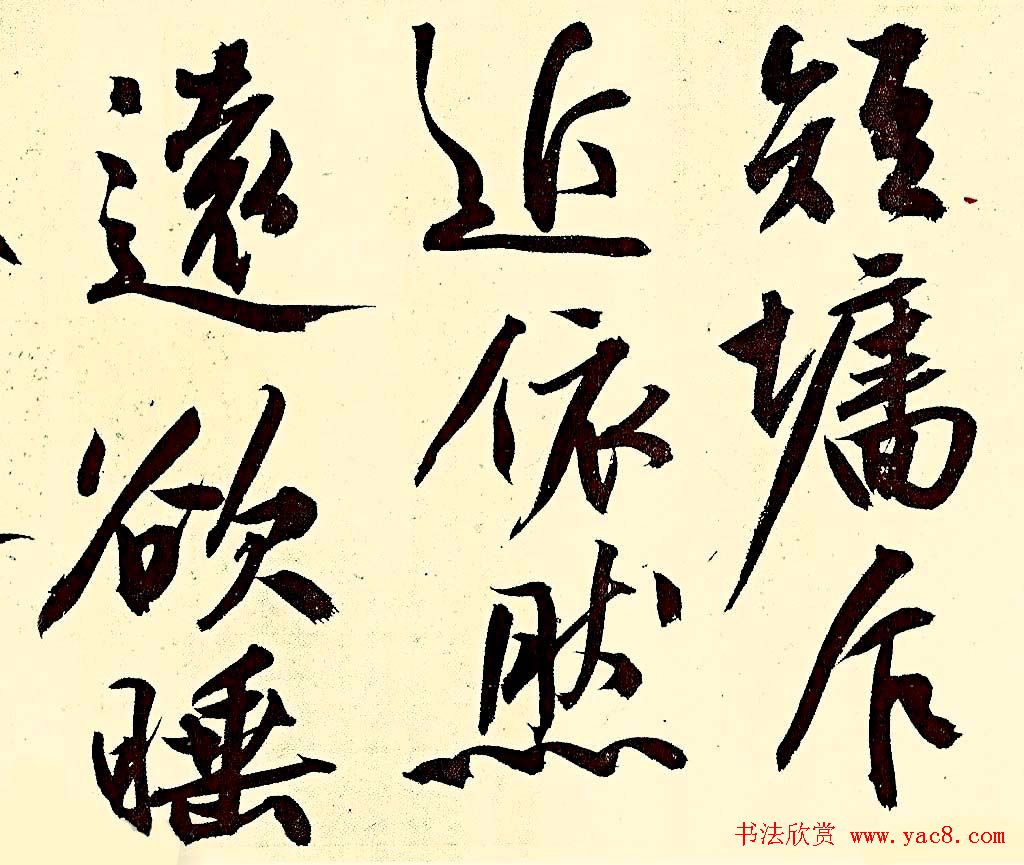 短墉乍
近依然
遠欲睡
书法欣赏 www.yac8.com